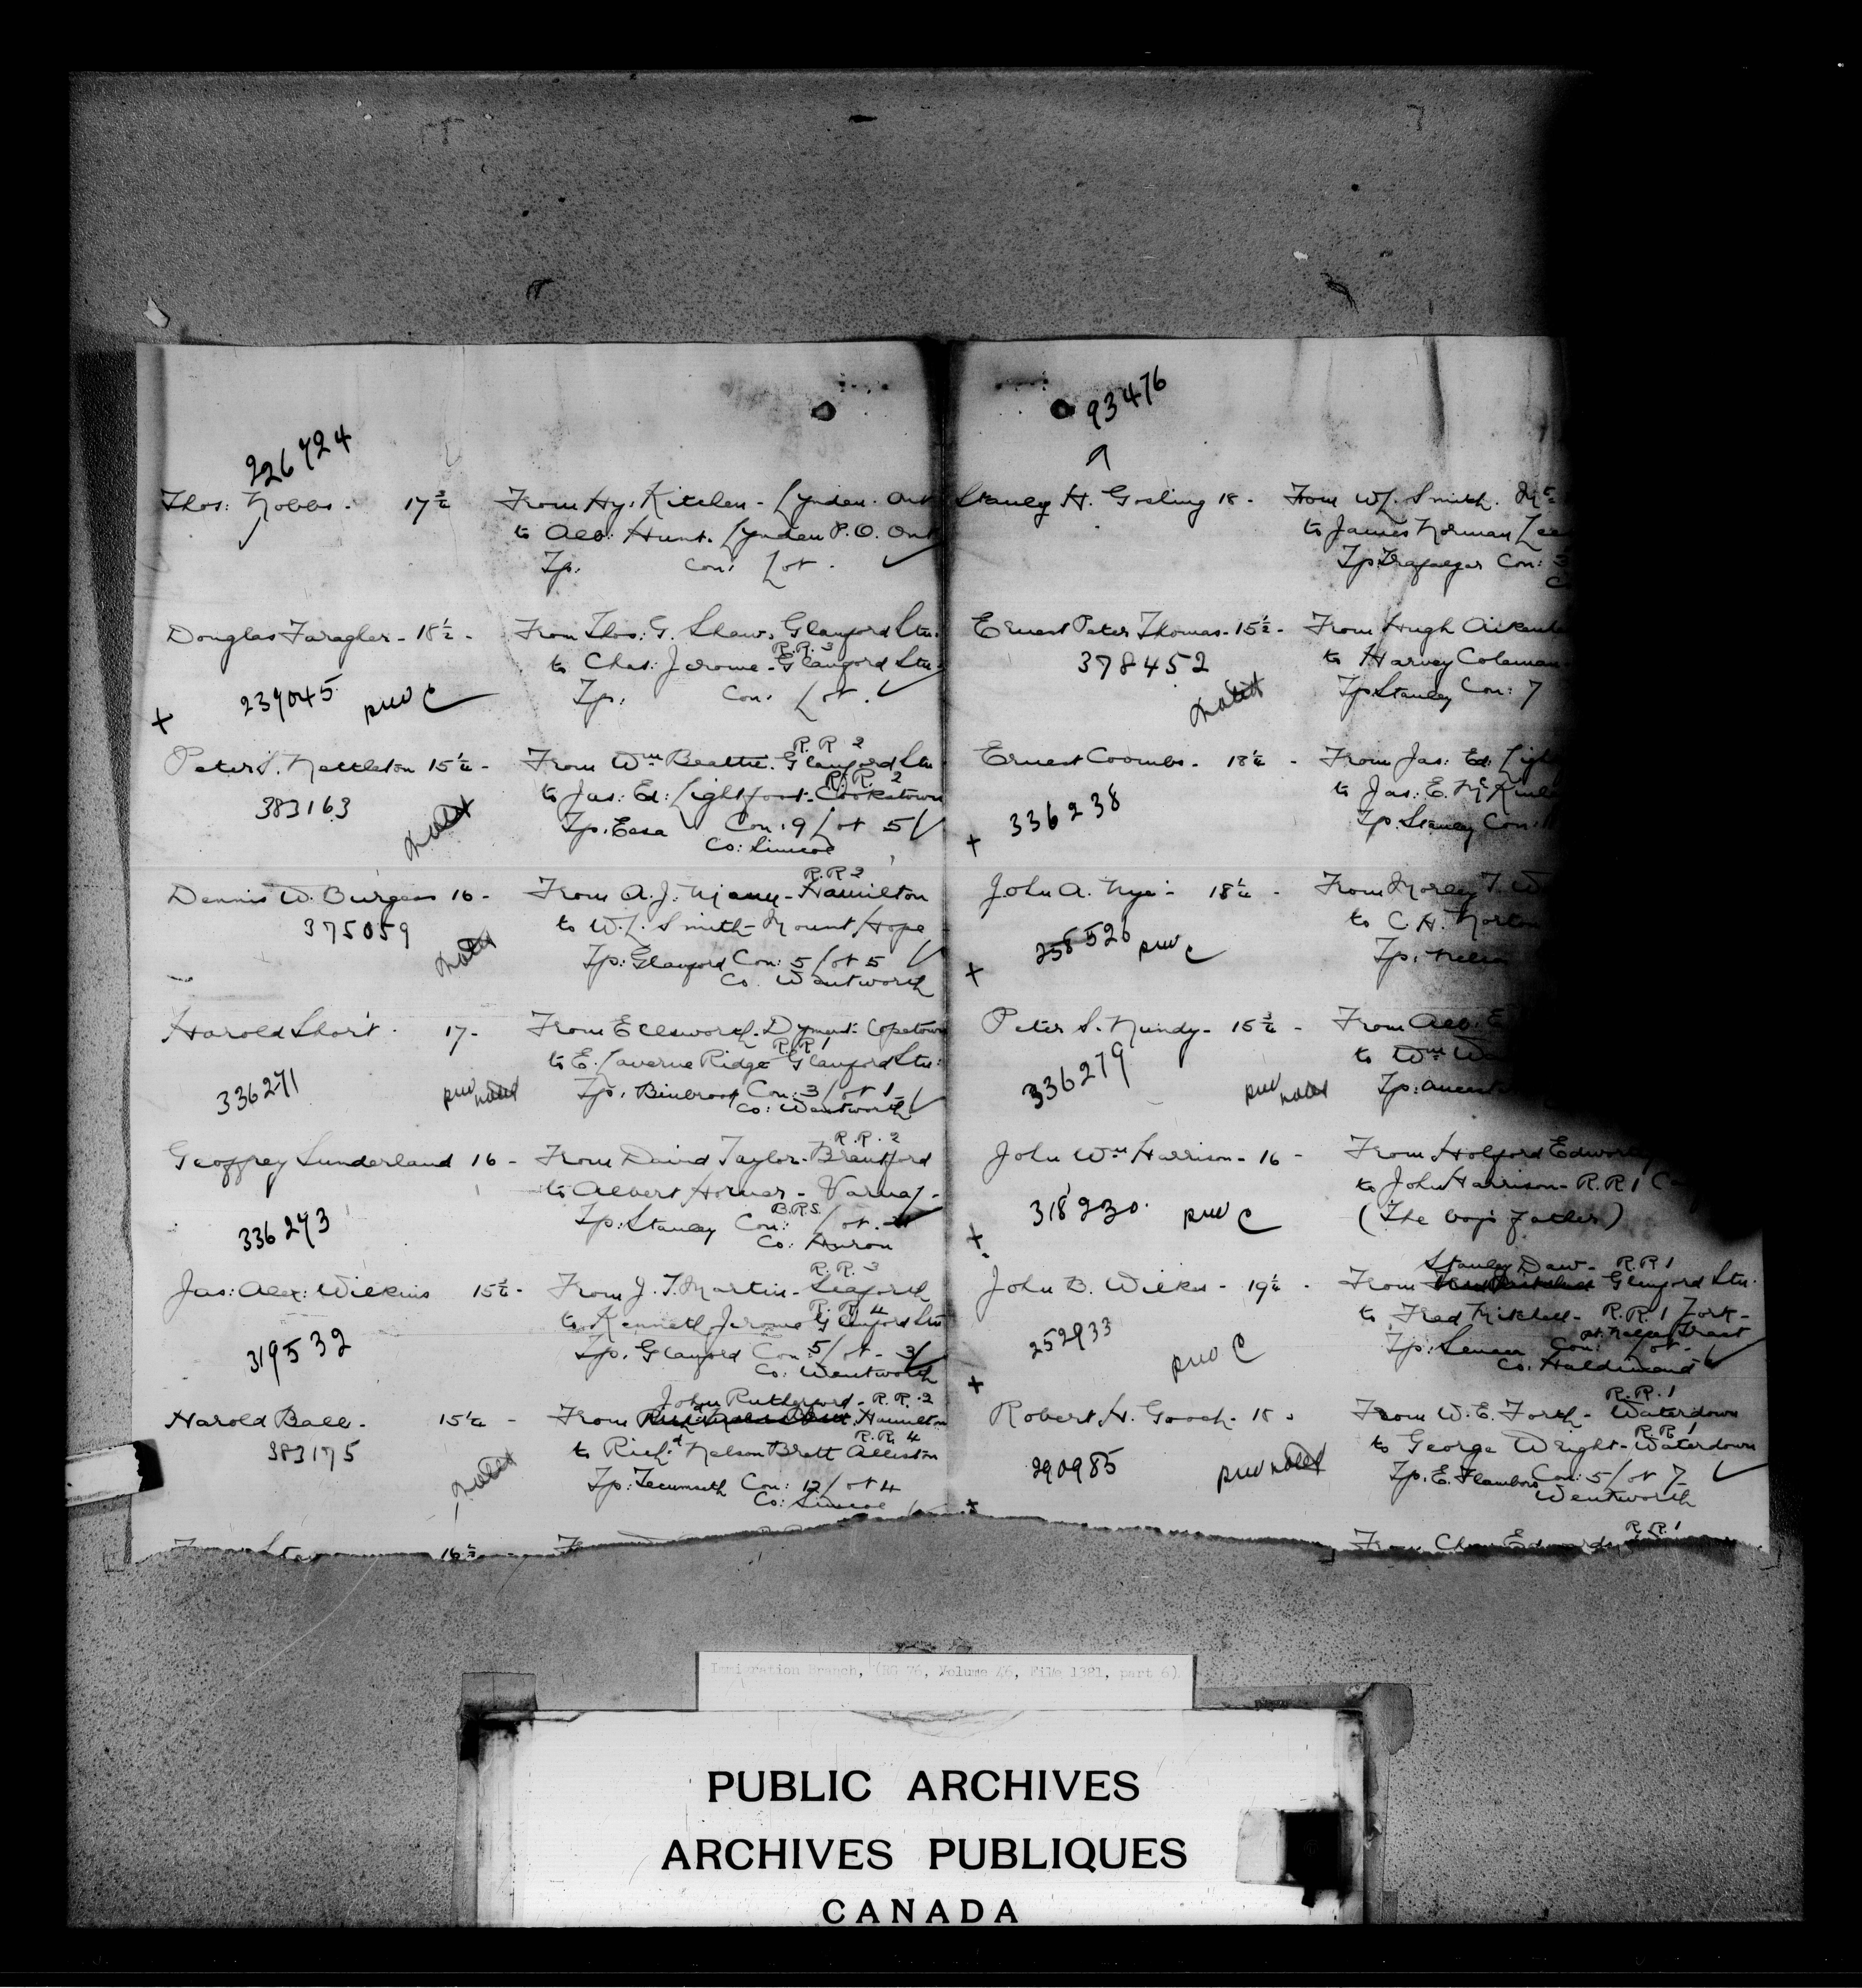 226724
Thos: Nobbs - 17¾ From Hy: Kitchen - Lynden. Ont
to Alb: Hunt. Lynden P.O. Ont
Tp: Con: Lot.
Douglas Faragher - 18½ - From Thos: G. Shaw. Glanford Stn.
R.R. 3
to Chas: Jerome - Glanford Stn.
239045 Tp: Con: Lot.
R.R 2
Peter S. Nettleton 15¼ - From Wm Beattie. Glanford Stn
R.R. 2
383163 to Jas: Ed: Lightfoot - Cookstown
noted Tp: Essa Con: 9 Lot 5
Co: Simcoe
R.R 2
Dennis W. Burgess 16 - From A. J. - Hamilton
375059 to W. L. Smith - Mount Hope
noted Tp: Glanford Con: 5 Lot 5
Co. Wentworth
Harold Short. 17 - From Ellsworth Dyment. Copetown
R.R 1
to E. Laverne Ridge Glanford Stn:
336271 noted Tp. Binbrook Con: 3 Lot 1
Co: Wentworth
R.R. 2
Geoffrey Sunderland 16 - From David Taylor - Brantford
to Albert Horner - Varna -
B.R.S.
336273 Tp: Stanley Con: Lot.
Co: Huron
R.R. 3
Jas: Alex: Wilkins 15½ - From J. T. Martin - Seaforth
R.R. 4
to Kenneth Jerome Glanford Stn
319532 Tp. Glanford Con: 5 Lot - 3
Co: Wentworth
John Rutherford - R.R. 2
Harold Ball - 15½ - From Hamilton
R.R. 4
383175 to Rich:d Nelson Brett Alliston
noted Tp: Tecumseth Con: 12 Lot 4
Co: Simcoe
16½
93476
Stanley H. Gosling 18 - From W. L. Smith.
to James Norman
Tp: Trafalgar Con: 3
Ernest Peter Thomas - 15½ - From Hugh
378452 to Harvey Coleman
noted Tp: Stanley Con: 7
Ernest Coombs - 18¼ - From Jas: Ed:
336238 to Jas: E.
Tp: Stanley Con:
John A. Nye - 18¼ - From Morley T.
258526 to C. H. Norton
Tp: Nelson
Peter S. Mundy - 15¾ - From Alb:
to Wm
336279 noted Tp:
John Wm Harrison - 16 - From Holford
to John Harrison - R.R 1
318230 (The boy's father)
Stanley Daw - R.R 1
John B. Wilks - 19¼ - From Glanford Stn.
to Fred Mitchell - R.R 1 York -
252933 Tp: Seneca Con: Lot -
Co: Haldimand
R.R. 1
Robert H. Gooch - 18 - From W. E. Forth - Waterdown
R.R 1
290985 to George Wright - Waterdown
noted Tp: E. Flamboro Con: 5 Lot 7
Wentworth
R.R. 1
From Chas Edwards
Immigration Branch, (RG 76, Volume 46, File 1381, part 6)
PUBLIC ARCHIVES
ARCHIVES PUBLIQUES
CANADA